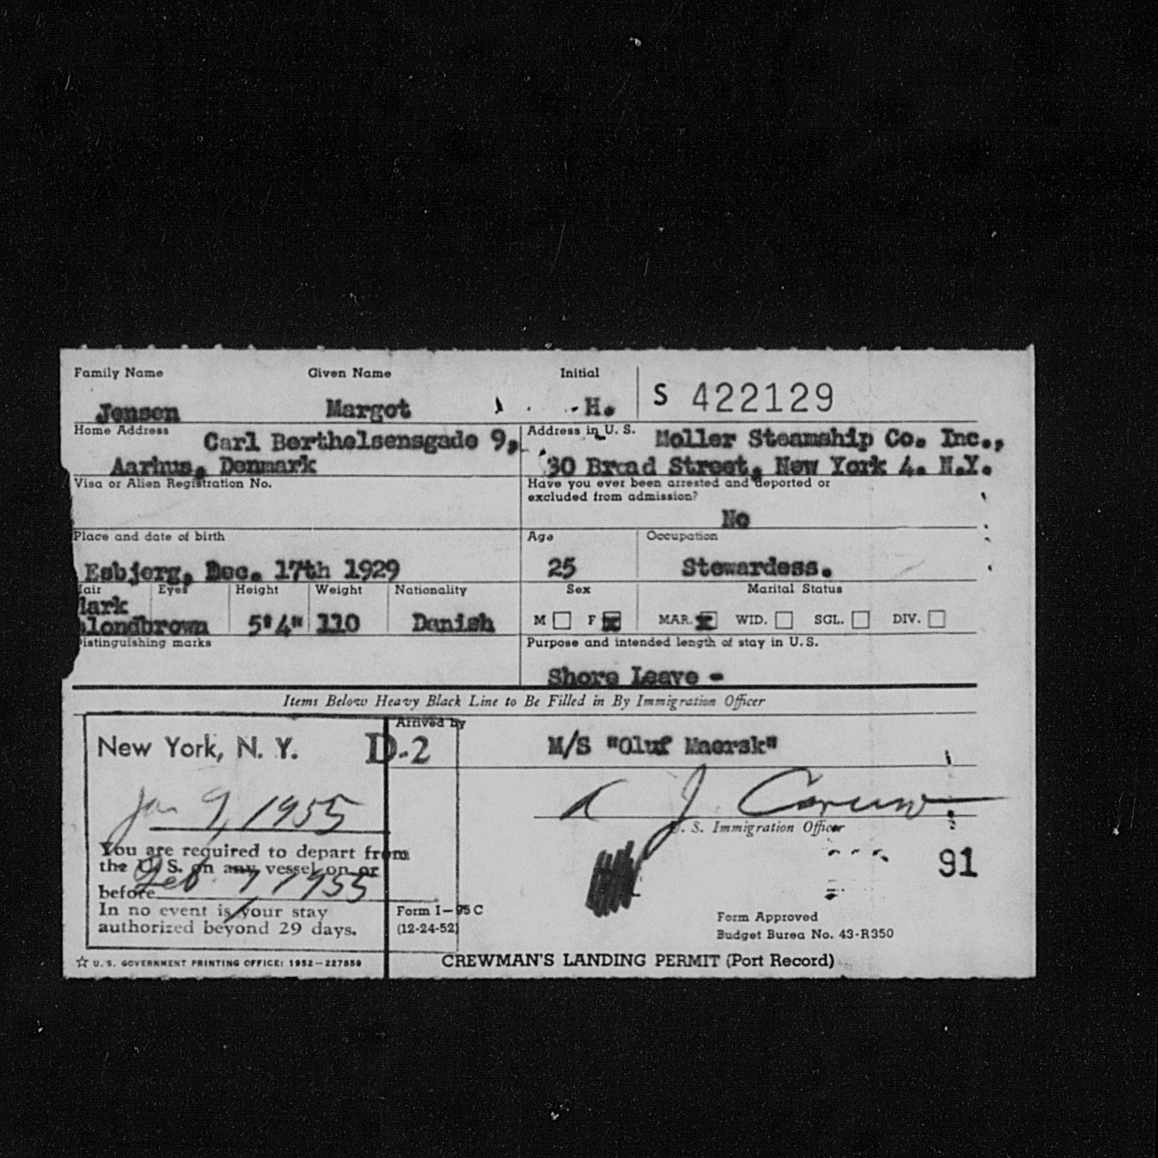 Family Name Given Name Initial
Jensen Margot H. S 422129
Home Address Carl Berthelsensgade 9,
Aarhus, Denmark
Address in U. S. Moller Steamship Co. Inc.,
30 Broad Street, New York 4. N.Y.
Visa or Alien Registration No.
Have you ever been arrested and deported or
excluded from admission?
No
Place and date of birth Age Occupation
Esbjerg, Dec. 17th 1929 25 Stewardess.
Hair Eyes Height Weight Nationality Sex Marital Status
dark
blondbrown 5'4" 110 Danish M F MAR. WID. SGL. DIV.
Distinguishing marks Purpose and intended length of stay in U. S.
Shore Leave -
Items Below Heavy Black Line to Be Filled in By Immigration Officer
Arrived by
New York, N. Y. D-2 M/S "Oluf Maersk"
Jan 9, 1955
U. S. Immigration Officer
You are required to depart from
the U. S. on any vessel on or
before Feb 7 1955
In no event is your stay
authorized beyond 29 days.
91
Form I-95 C
(12-24-52)
Form Approved
Budget Burea No. 43-R350
☆ U. S. GOVERNMENT PRINTING OFFICE: 1952-227859
CREWMAN'S LANDING PERMIT (Port Record)